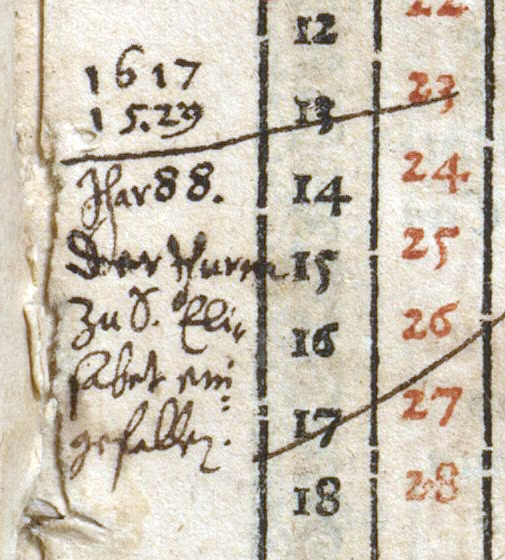 22
12
1617
23
15.29
13
24
Jhar 88.
14
25
Der thurm
15
Zu S. Eli-
26
16
sabet ein
27
gefallen.
17
28
18